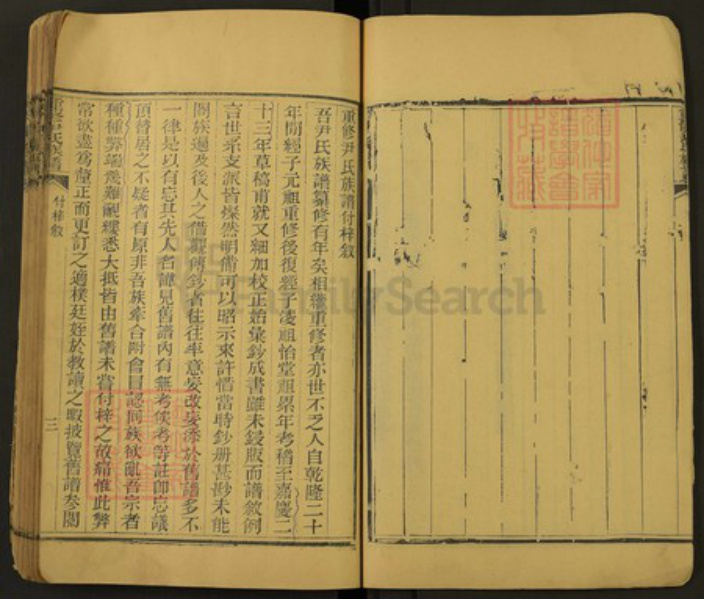 重修尹氏族譜付梓敘
吾尹氏族譜纂修有年矣相繼重修者亦世不乏人自乾隆二十
年間經子元祖重修後復經子凌祖怡堂祖累年考稽至嘉慶二
十三年草稿甫就又細加校正始彙鈔成書雖未鋟版而譜敘例
言世系支派皆燦然明備可以昭示來許惜當時鈔册甚尠未能
閤族遍及後人之借觀傳鈔者往往率意妄改妄添於舊譜多不
一律是以有忘其先人名諱見舊譜內有無考俟考等註即忘議
頂替居之不疑者有原非吾族牽合附會冒認同族欲亂吾宗者
種種弊端幾難覼縷悉大抵皆由舊譜未嘗付梓之故痛惟此弊
常欲盡為釐正而更訂之適樸廷姪於教讀之暇披覽舊譜參閱
付梓敘
三
FamilySearch